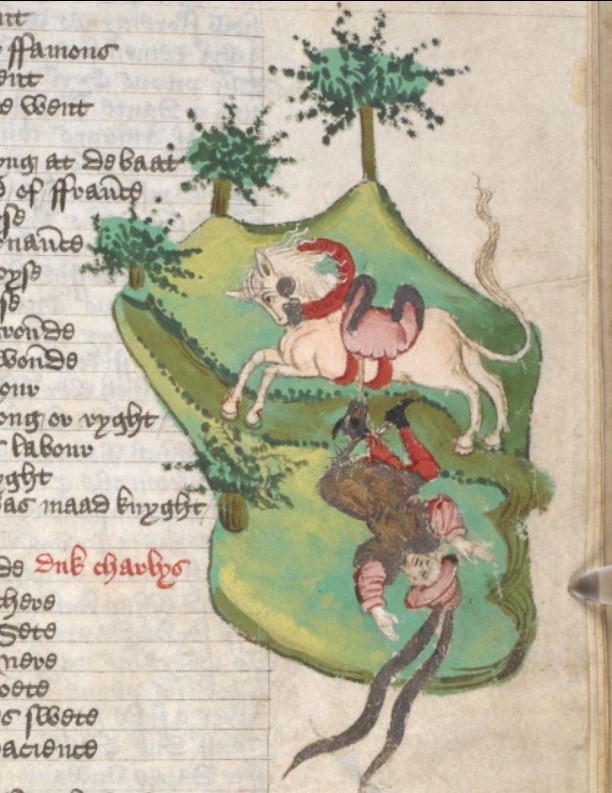 ffamous
ent
e went
yng at debaat
d of ffraūce
se
naūce
oyse
se
wonde
our
ong or ryght
labour
yght
as maad knyght
de duk charlys
chere
Sete
nere
oete
s swete
acience